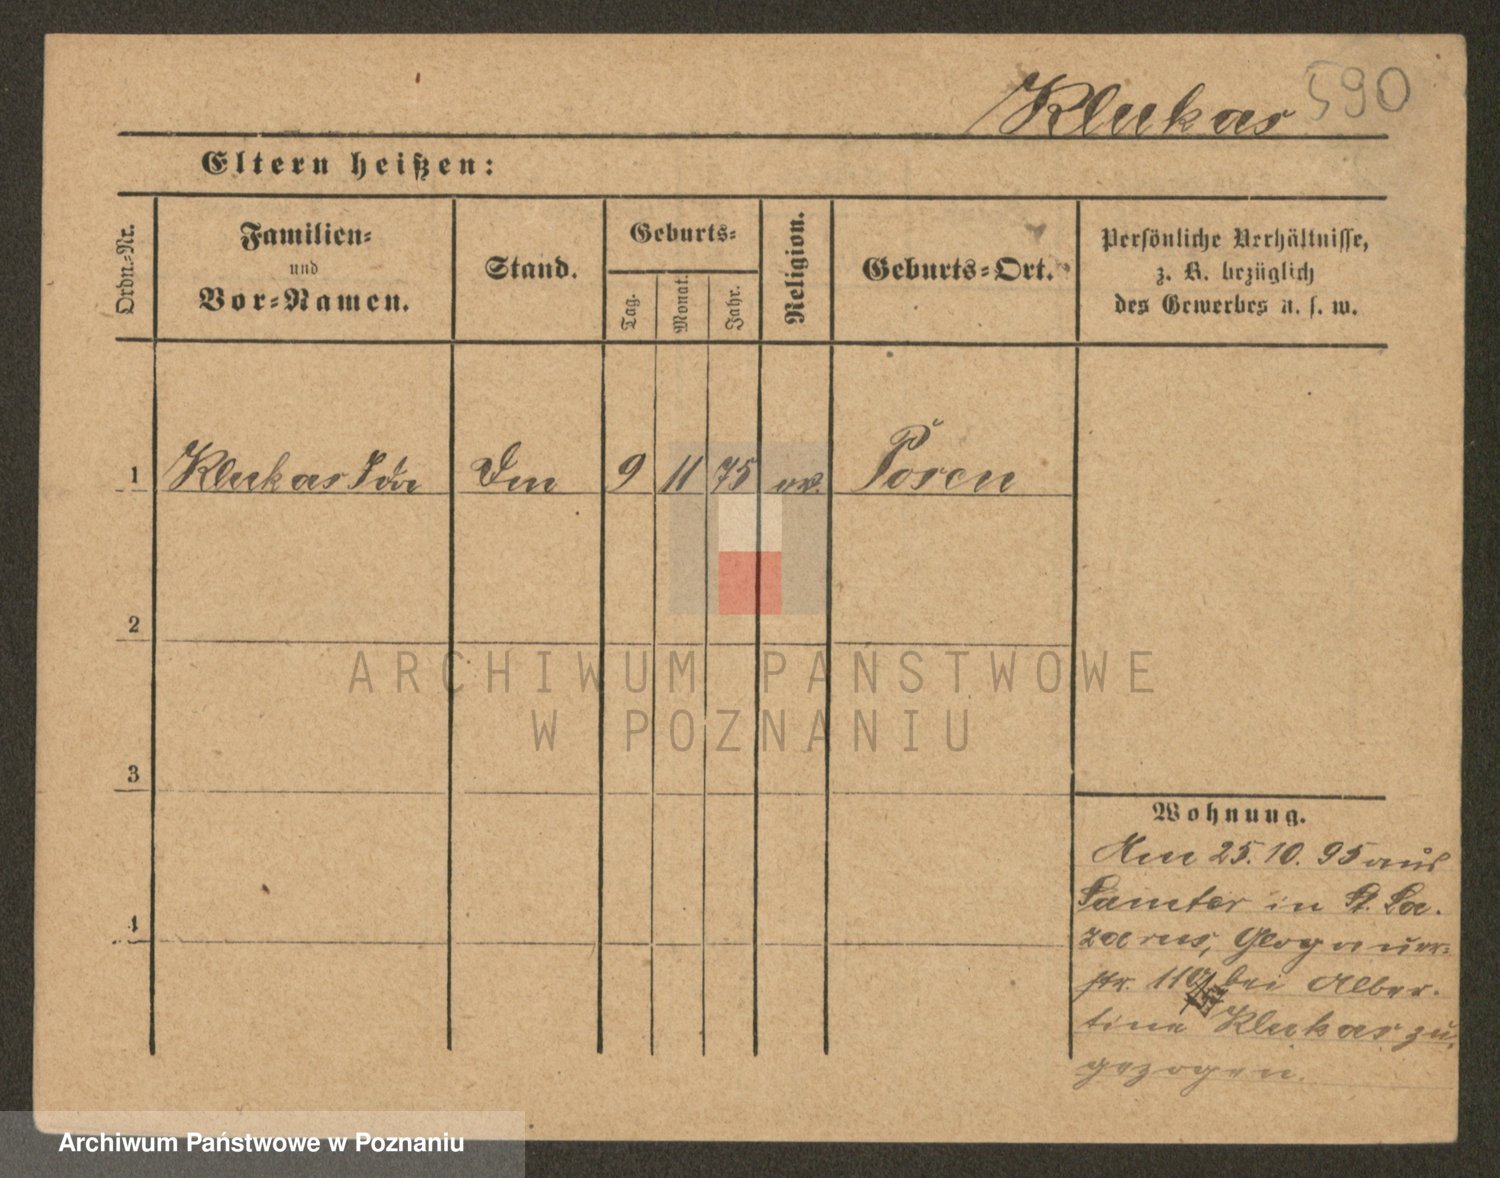 Klukas 590
Eltern heißen:
Ordn.-Nr.
Familien-
und
Vor-Namen.
Stand.
Geburts-
Tag.
Monat.
Jahr.
Religion.
Geburts-Ort.
Persönliche Verhältnisse,
z. B. bezüglich
des Gewerbes u. s. w.
1 Klukas Ida 9 11 75 ev. Posen
2
3
4
Wohnung.
Am 25.10.95 aus
Samter in St. La-
zarus, Glogauer-
str. 110 bei Alber-
tine Klukas zu-
gezogen.
ARCHIWUM PAŃSTWOWE
W POZNANIU
Archiwum Państwowe w Poznaniu